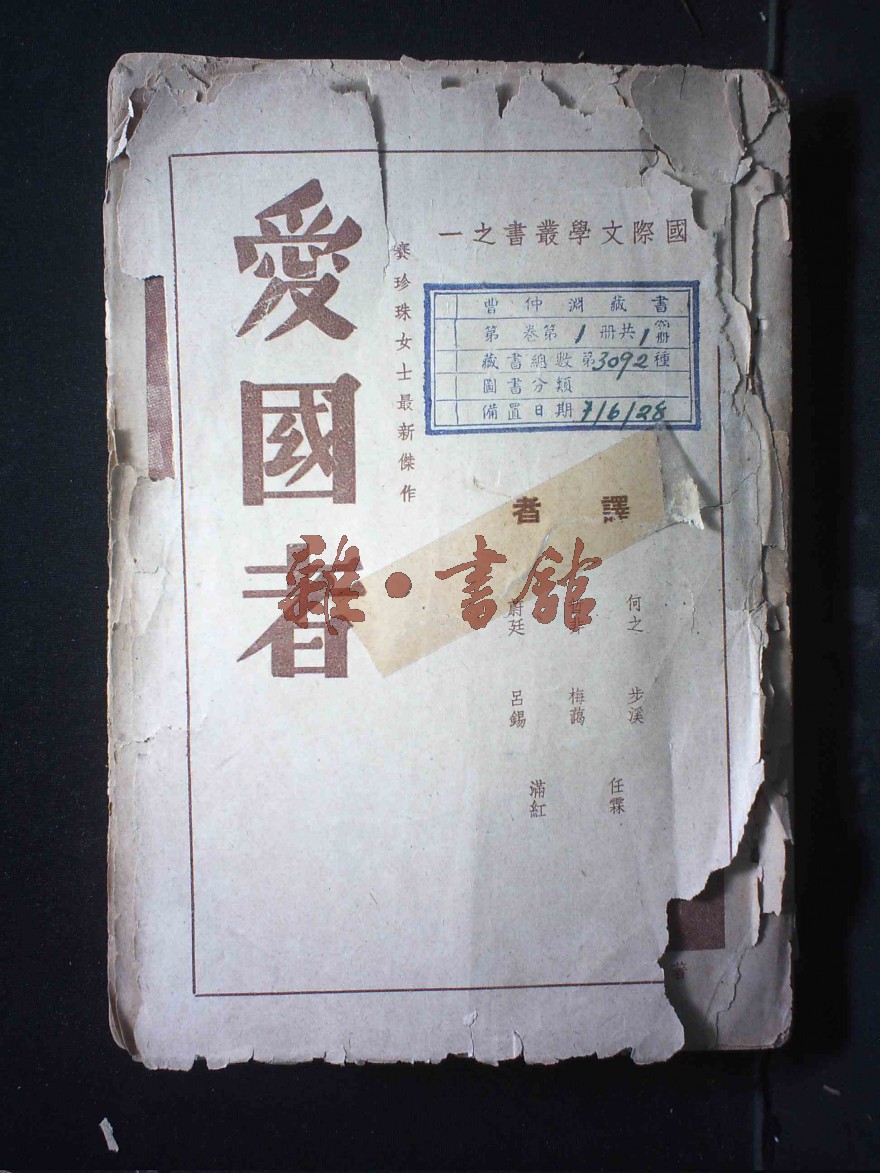 國際文學叢書之一
愛國者
賽珍珠女士最新傑作
曹仲淵藏書
第 卷第1册共1册
藏書總數第3092種
圖書分類
備置日期 7/6/28
譯者
何之
蔚廷
步溪
梅藹
呂錫
任霖
滿紅
雜·書館
著